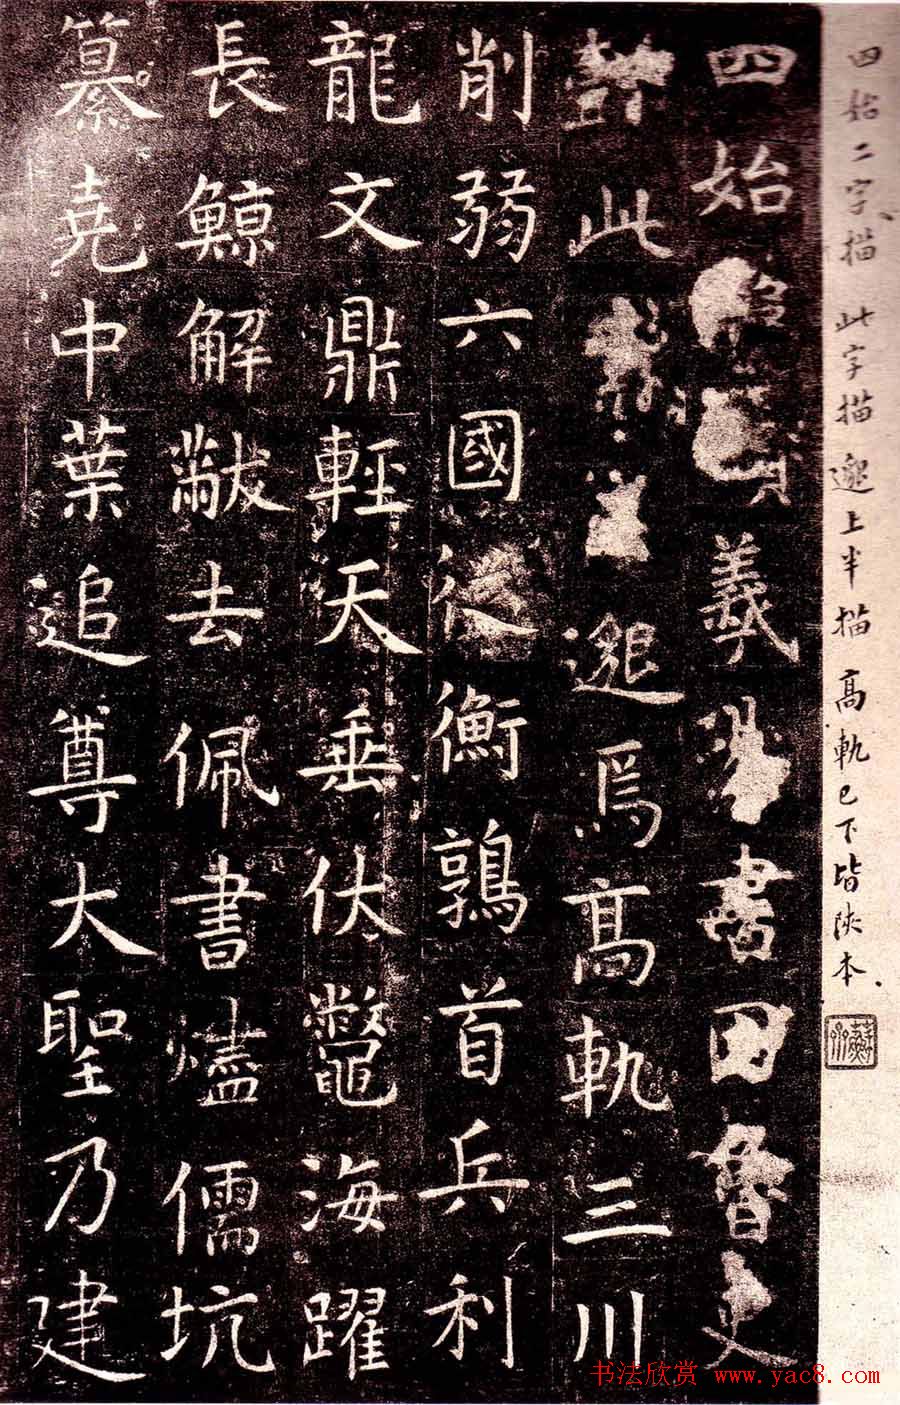 四始二字描 此字描 邈上半描 高軌已下皆陝本
四始繫纘羲易書因魯史
懿此素王邈焉高軌三川
削弱六國從衡鶉首兵利
龍文鼎輕天垂伏鱉海躍
長鯨解黻去佩書燼儒坑
纂堯中葉追尊大聖乃建
书法欣赏 www.yac8.com